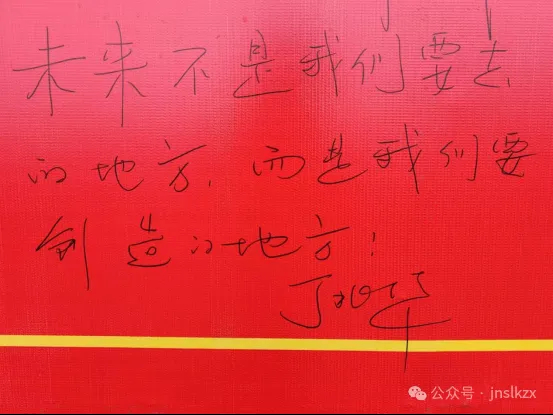 未来不是我们要去
的地方,而是我们要
创造的地方!
公众号 · jnslkzx